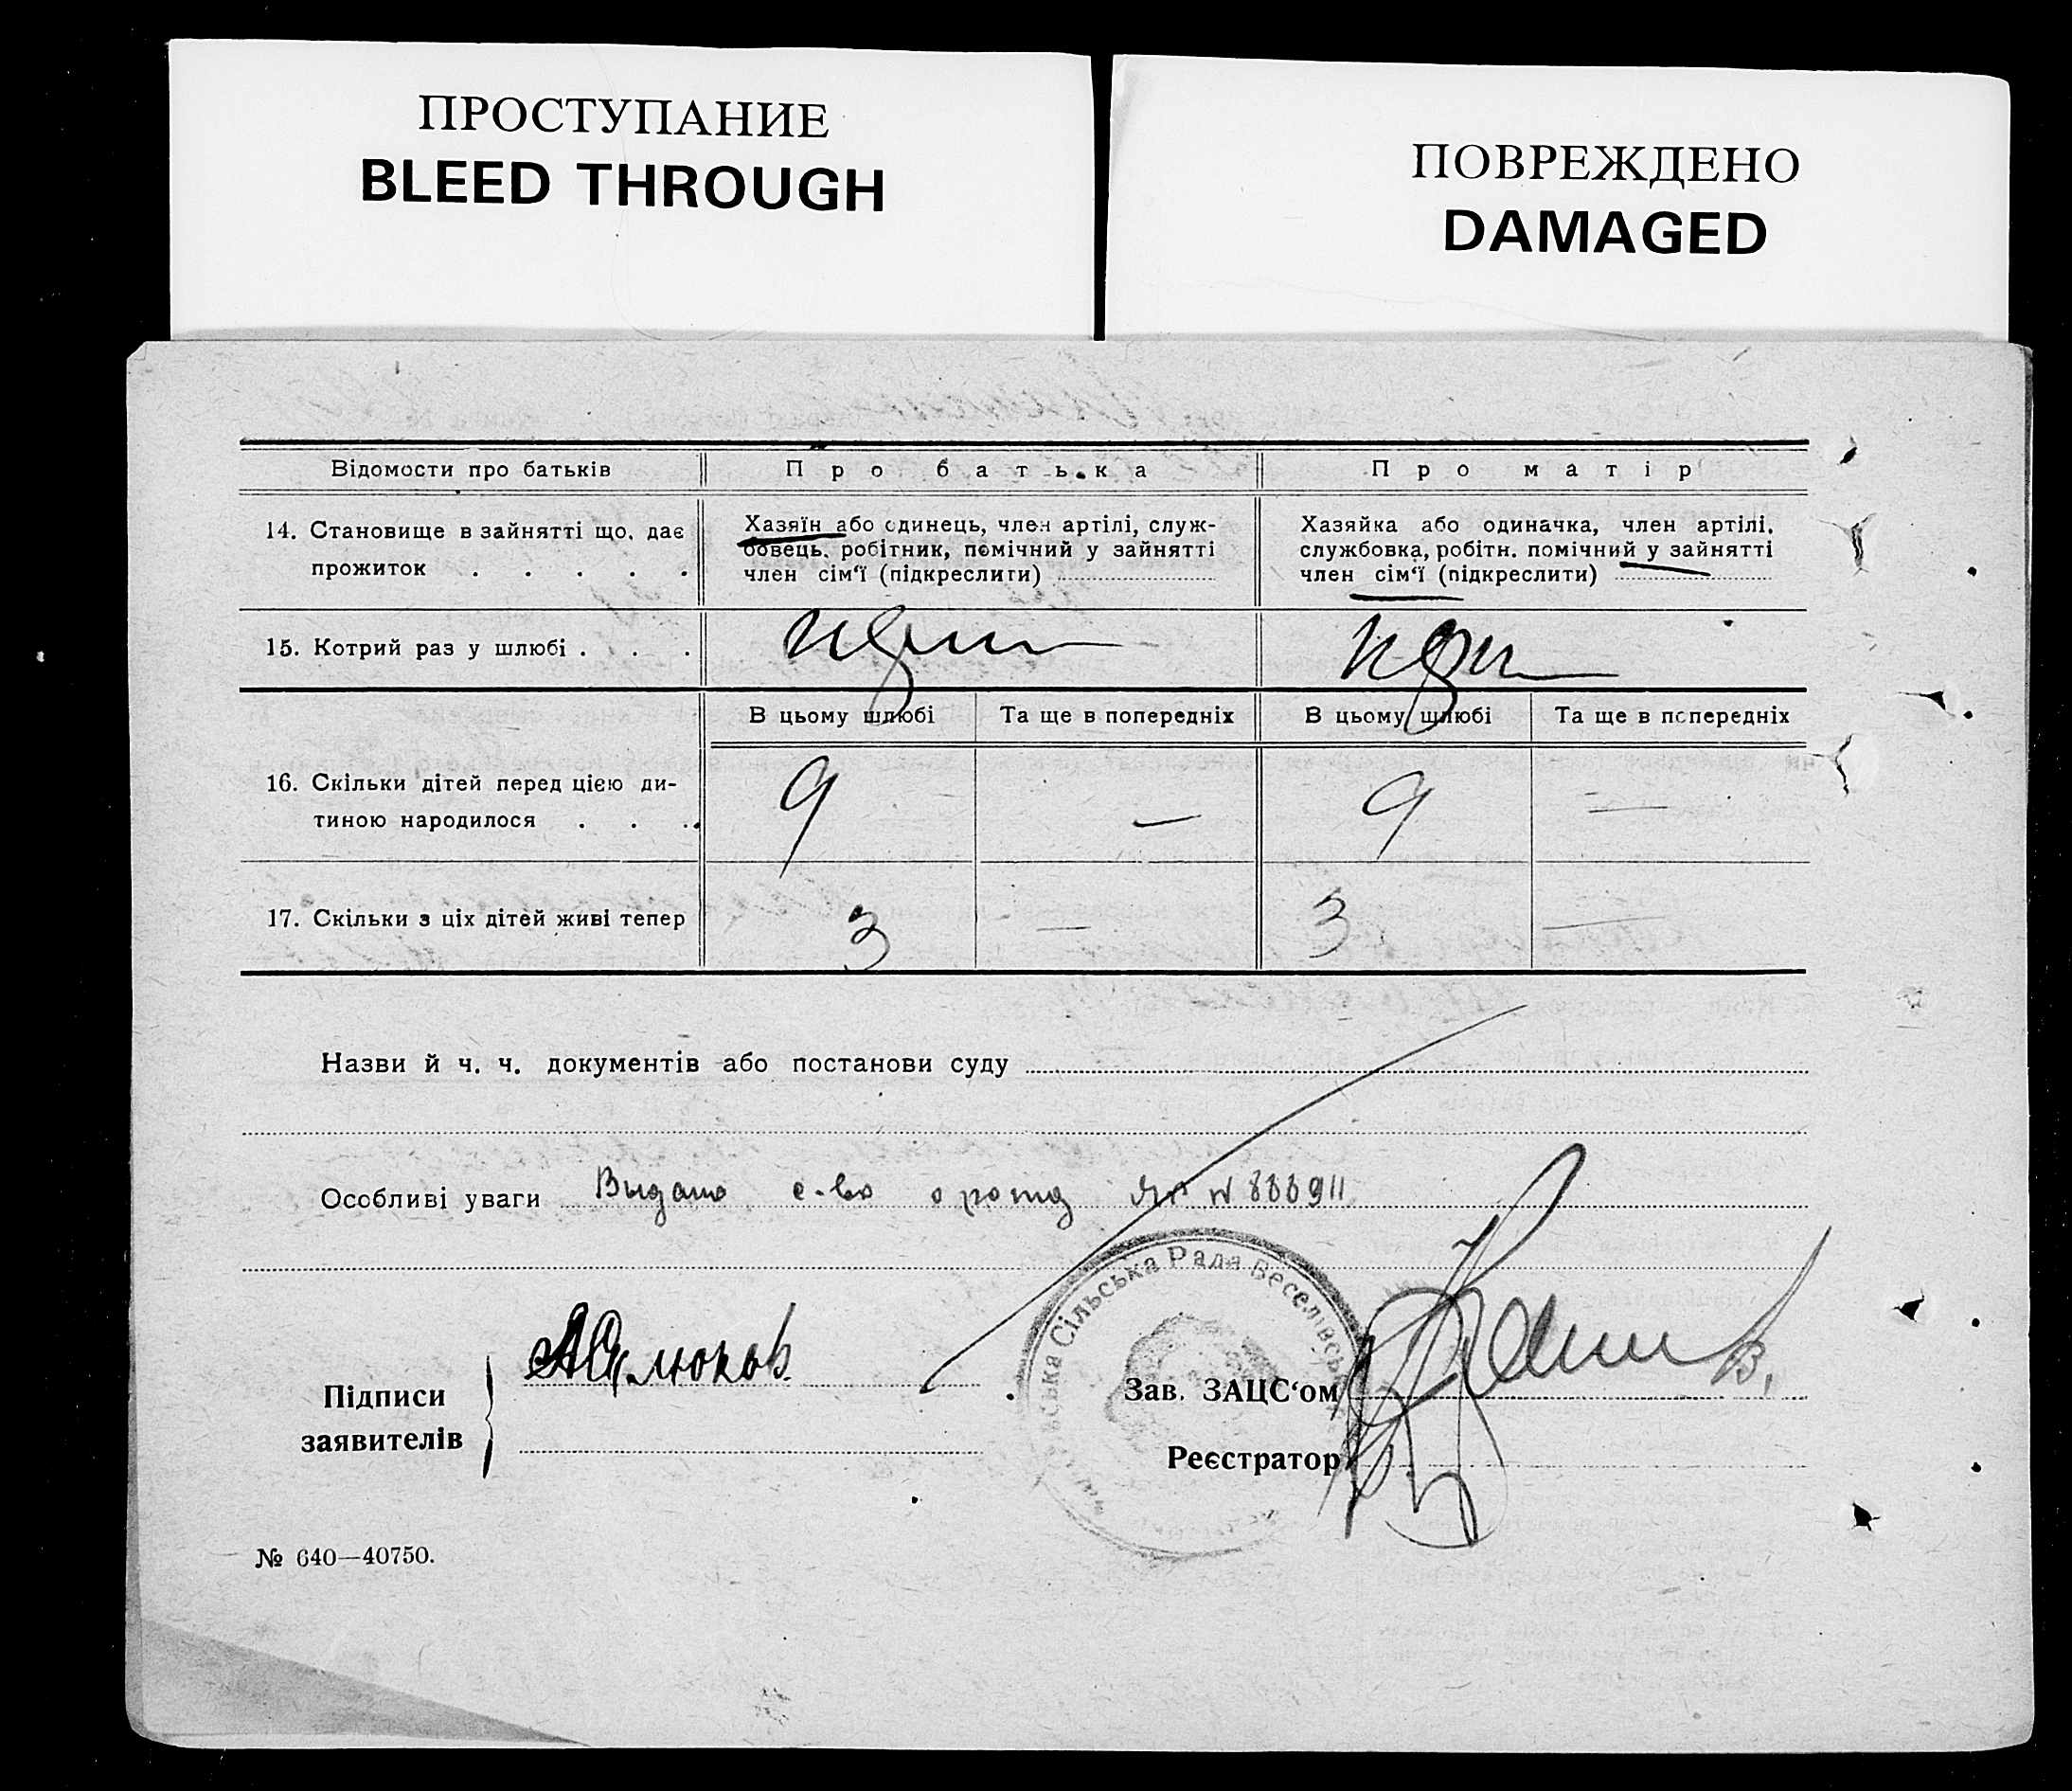 ПРОСТУПАНИЕ
BLEED THROUGH
ПОВРЕЖДЕНО
DAMAGED
Відомости про батьків
Про батька
Про матір
14. Становище в зайнятті що, дає
прожиток . . . . .
Хазяїн або одинець, член артілі, служ-
бовець, робітник, помічний у зайнятті
член сім‘ї (підкреслити)
Хазяйка або одиначка, член артілі,
службовка, робітн. помічний у зайнятті
член сім‘ї (підкреслити)
15. Котрий раз у шлюбі . . .
В цьому шлюбі
Та ще в попередніх
В цьому шлюбі
Та ще в попередніх
16. Скільки дітей перед цією ди-
тиною народилося . . .
9 — 9 —
17. Скільки з ціх дітей живі тепер
3 — 3 —
Назви й ч. ч. документів або постанови суду
Особливі уваги Выдано с-во о рожд № 888911
Сільська Рада Веселівськ
Підписи
заявителів
Зав. ЗАЦС‘ом
Реєстратор
№ 640—40750.